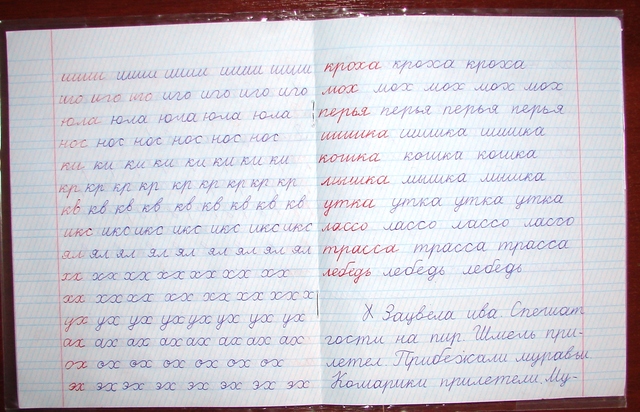 шиши шиши шиши шиши шиши
иго иго иго иго иго иго иго
юла юла юла юла юла
нос нос нос нос нос нос
ки ки ки ки ки ки ки
кр кр кр кр кр кр кр кр кр
кв кв кв кв кв кв кв кв кв
икс икс икс икс икс икс икс
ял ял ял ял ял ял ял ял
хх хх хх хх хх хх хх
хх хх хх хх хх хх хх х
ух ух ух ух ух ух ух ух
ах ах ах ах ах ах ах ах
ох ох ох ох ох ох ох
эх эх эх эх эх эх эх эх
кроха кроха кроха
мох мох мох мох мох
перья перья перья перья
шишка шишка шишка
кошка кошка кошка
мышка мышка мышка
утка утка утка утка
лассо лассо лассо лассо
трасса трасса трасса
лебедь лебедь лебедь
Х Зацвела ива Спешат
гости на пир. Шмель при-
летел Прибежали муравьи
Комарики прилетели. Му-